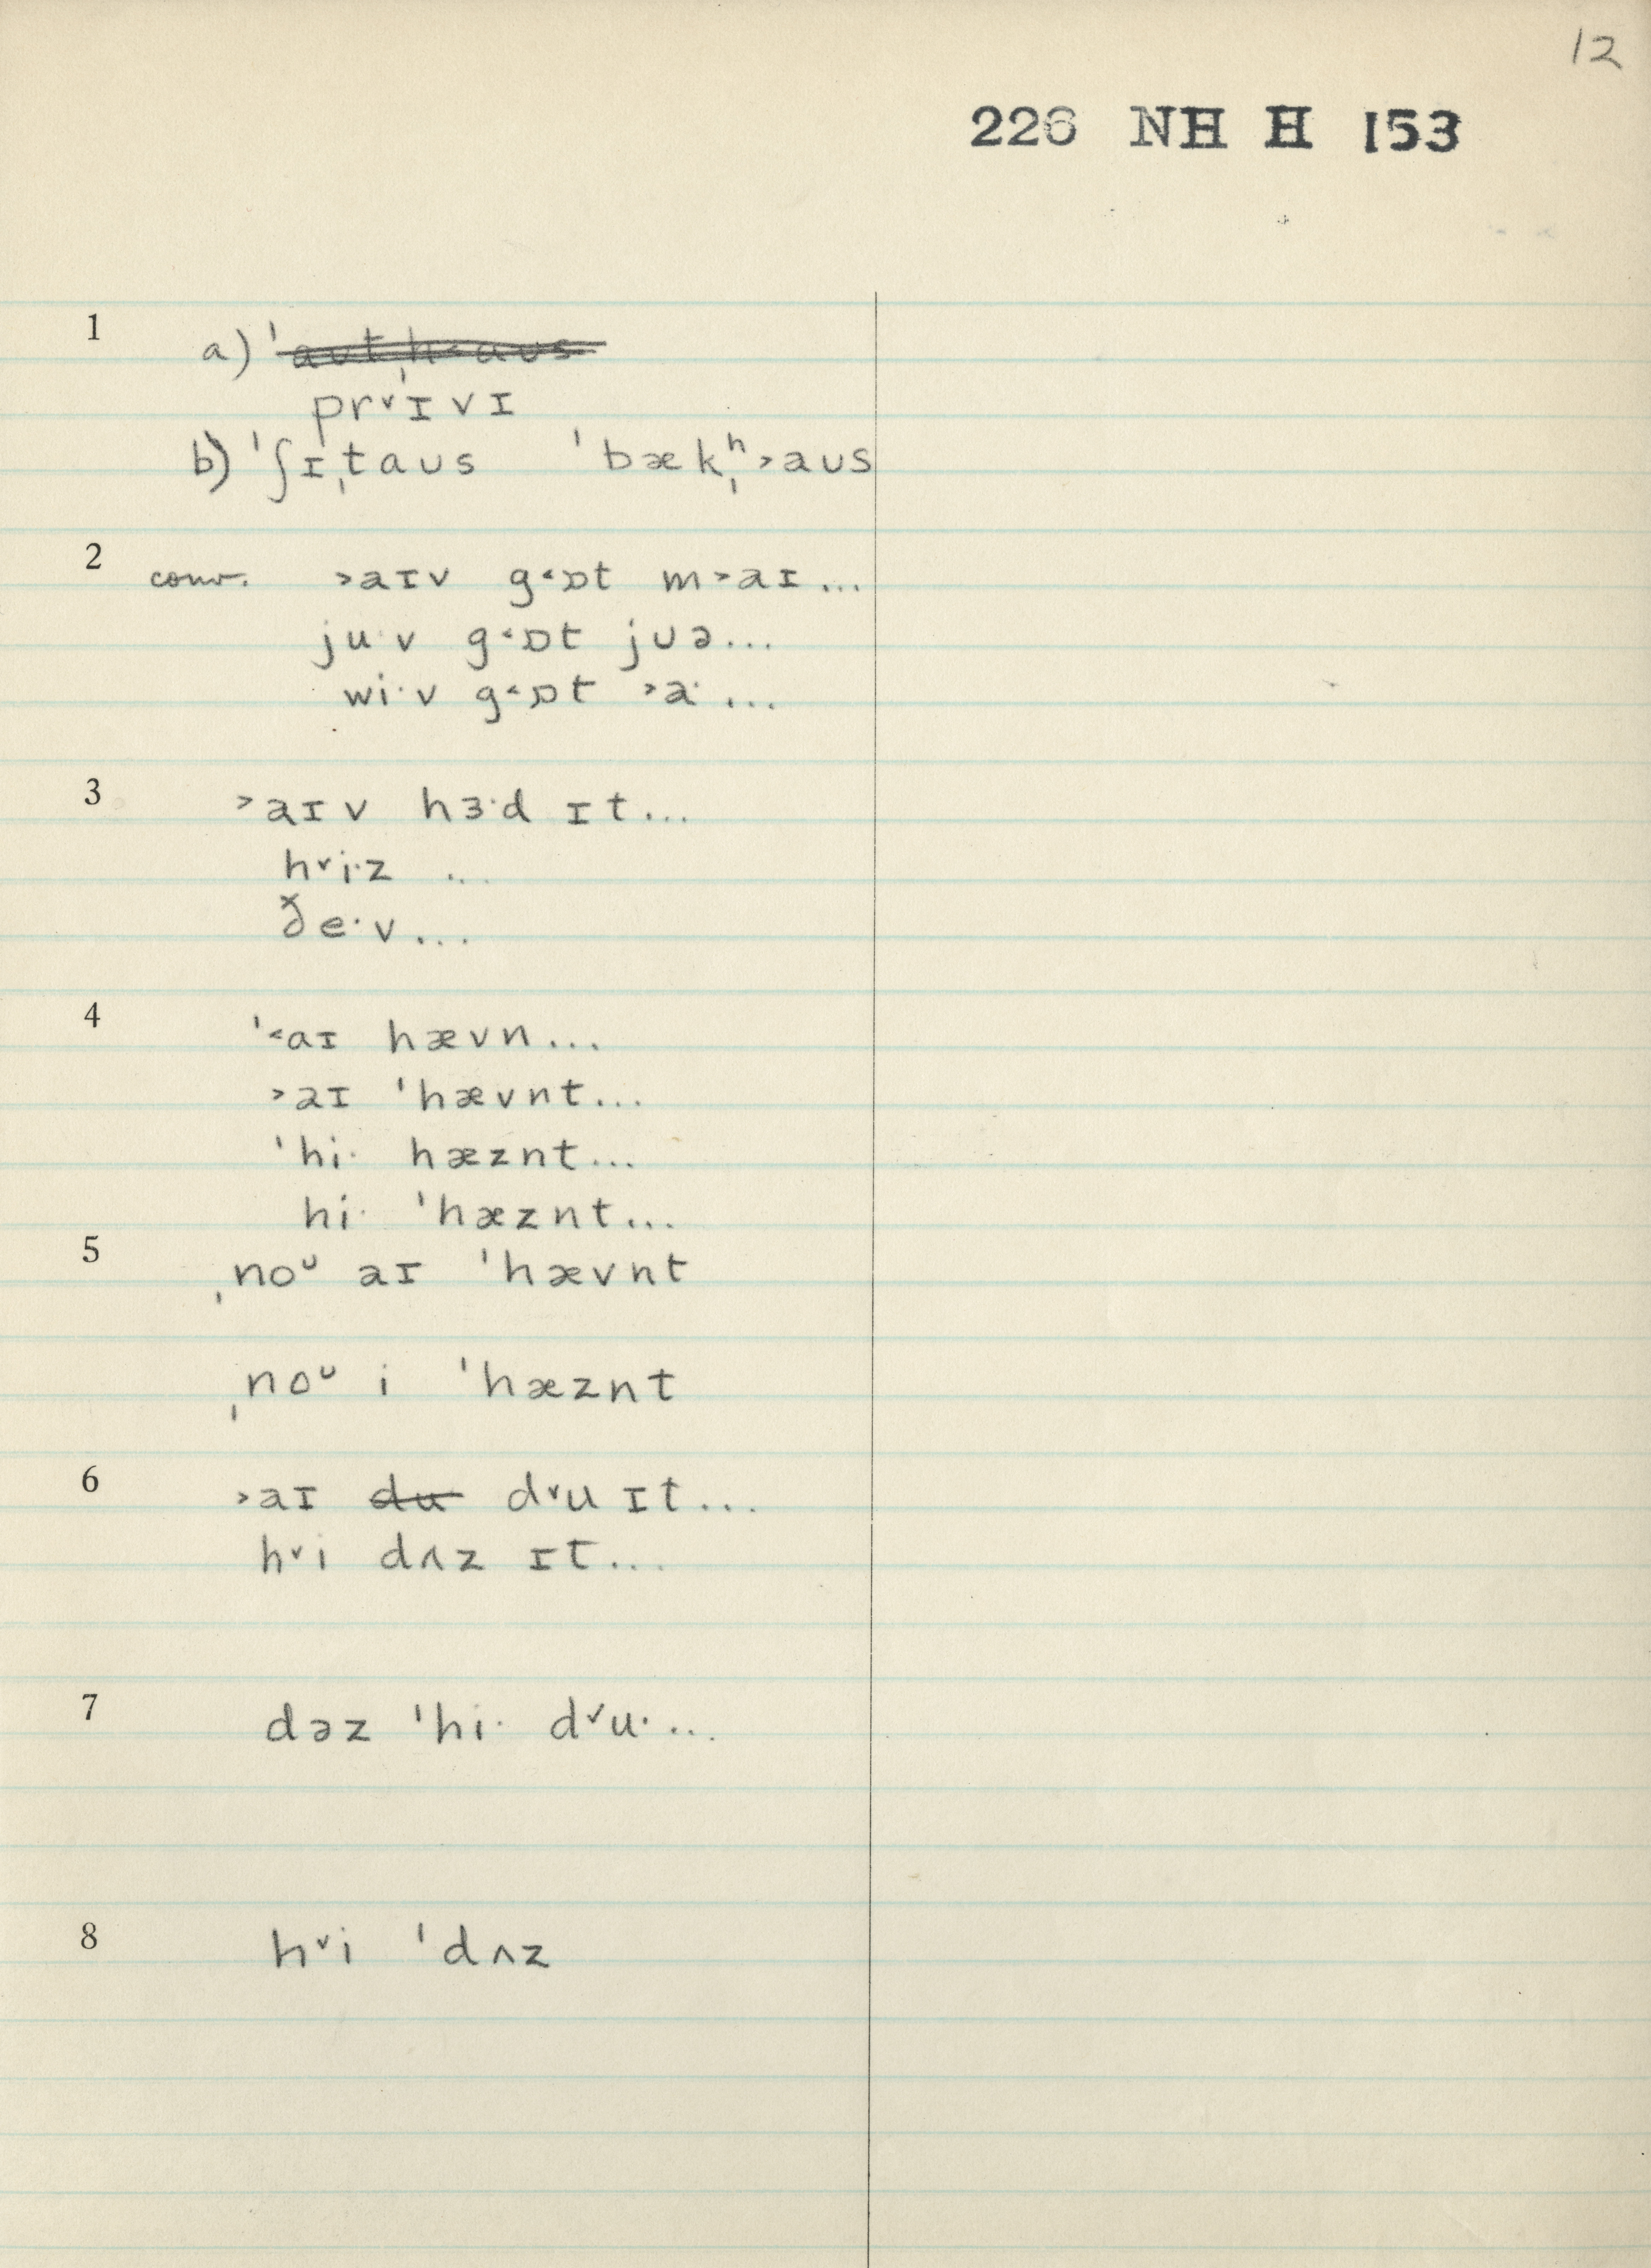 12
226 NH H 153
1 a) ˈaʊtˌh˂aʊs
pr˅ɪvɪ
b) ˈʃɪˌtaʊs ˈbækˌʰ˃aʊs
2 conv. ˃aɪv g˂ɒt m˃aɪ...
ju·v g˂ɒt jʊə...
wi·v g˂ɒt ˃a· ...
3 ˃aɪv hɜ·d ɪt...
h˅i·z ...
ðe·v...
4 ˈ˂aɪ hævn...
˃aɪ ˈhævnt...
ˈhi· hæznt...
hi· ˈhæznt...
5 ˌnoᶷ aɪ ˈhævnt
ˌnoᶷ i ˈhæznt
6 ˃aɪ du d˅u ɪt...
h˅i dʌz ɪt...
7 dəz ˈhi· d˅u·...
8 h˅i ˈdʌz